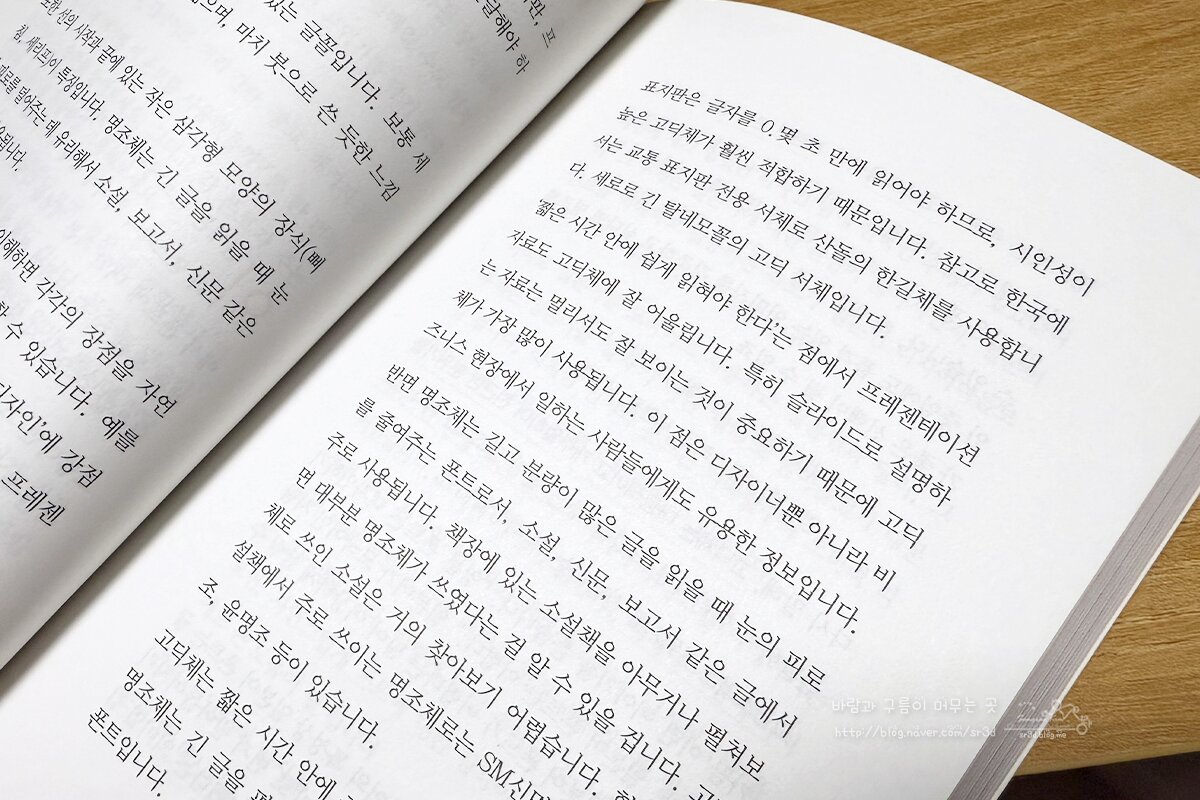 판, 프
달해야 하
있는 글꼴입니다. 보통 세
으며, 마치 붓으로 쓴 듯한 느낌
또한 선의 시작과 끝에 있는 작은 삼각형 모양의 장식(삐
침, 세리프)이 특징입니다. 명조체는 긴 글을 읽을 때 눈
피로를 덜어주는 데 유리해서 소설, 보고서, 신문 같은
이해하면 각각의 장점을 자연
수 있습니다. 예를
디자인'에 강점
프레젠
표지판은 글자를 0.몇 초 만에 읽어야 하므로, 시인성이
높은 고딕체가 훨씬 적합하기 때문입니다. 참고로 한국에
서는 교통 표지판 전용 서체로 산돌의 한길체를 사용합니
다. 세로로 긴 탈네모꼴의 고딕 서체입니다.
'짧은 시간 안에 쉽게 읽혀야 한다'는 점에서 프레젠테이션
자료도 고딕체에 잘 어울립니다. 특히 슬라이드로 설명하
는 자료는 멀리서도 잘 보이는 것이 중요하기 때문에 고딕
체가 가장 많이 사용됩니다. 이 점은 디자이너뿐 아니라 비
즈니스 현장에서 일하는 사람들에게도 유용한 정보입니다.
반면 명조체는 길고 분량이 많은 글을 읽을 때 눈의 피로
를 줄여주는 폰트로서, 소설, 신문, 보고서 같은 글에서
주로 사용됩니다. 책장에 있는 소설책을 아무거나 펼쳐보
면 대부분 명조체가 쓰였다는 걸 알 수 있을 겁니다.
체로 쓰인 소설은 거의 찾아보기 어렵습니다.
설책에서 주로 쓰이는 명조체로는 SM신명
조, 윤명조 등이 있습니다.
고딕체는 짧은 시간 안에
명조체는 긴 글을
폰트입니다.
바람과 구름이 머무는 곳
http://blog.naver.com/sr3d
sr3d.blog.me